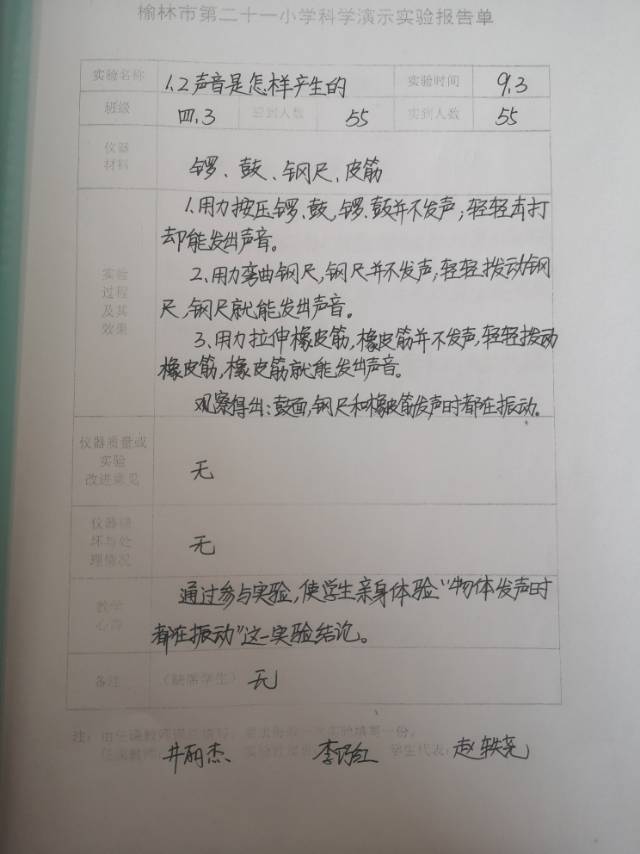 榆林市第二十一小学科学演示实验报告单
实验名称 1.2声音是怎样产生的 实验时间 9.3
班级 四.3 应到人数 55 实到人数 55
仪器
材料
锣、鼓、钢尺、皮筋
实验
过程
及其
效果
1.用力按压锣、鼓,锣、鼓并不发声;轻轻击打
却能发出声音。
2.用力弯曲钢尺,钢尺并不发声,轻轻拨动钢
尺,钢尺就能发出声音。
3.用力拉伸橡皮筋,橡皮筋并不发声,轻轻拨动
橡皮筋,橡皮筋就能发出声音。
观察得出:鼓面,钢尺和橡皮筋发声时都在振动。
仪器质量或
实验
改进意见
无
仪器损
坏与处
理情况
无
教学
心得
通过参与实验,使学生亲身体验“物体发声时
都在振动”这一实验结论。
备注 (缺席学生) 无
注:由任课教师课后填写,要求每做一次实验填写一份。
任课教师: 井丽杰 李巧红 学生代表: 赵轶尧